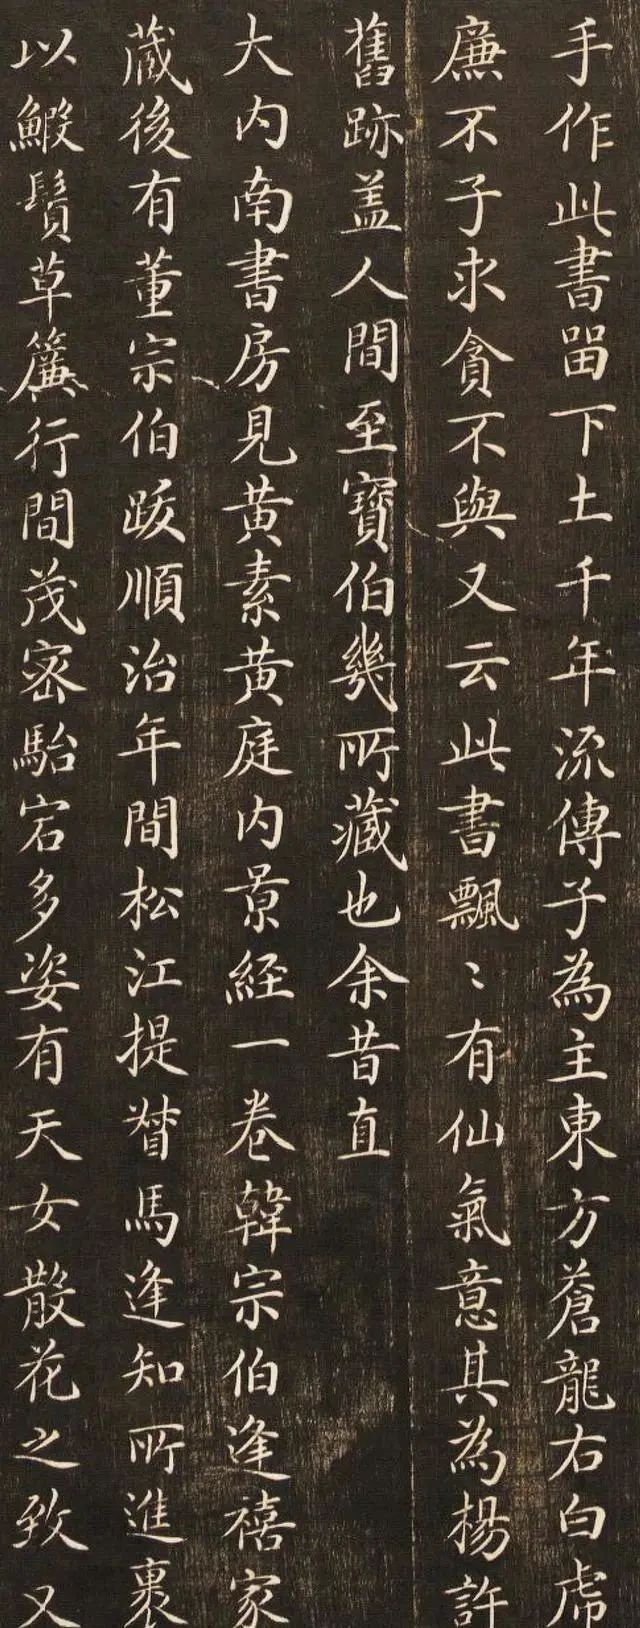 手作此書留下土千年流傳子為主東方蒼龍右白虎
廉不子求貪不與又云此書飄〻有仙氣意其為楊許
舊跡盖人間至寶伯幾所藏也余昔直
大内南書房見黄素黄庭内景経一卷韓宗伯逢禧家
蔵後有董宗伯跋順治年間松江提督馬逢知所進裹
以鰕鬚草簾行間茂密駘宕多姿有天女散花之致又